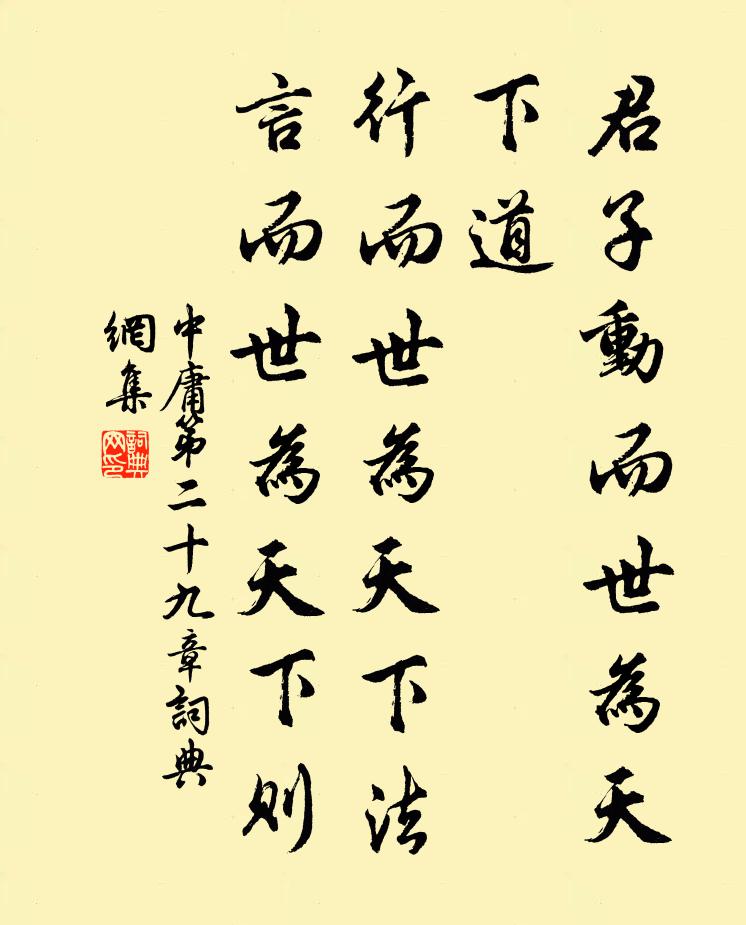 君子動而世為天
下道
行而世為天下法
言而世為天下则
中庸第二十九章詞典
網集
詞典
网印